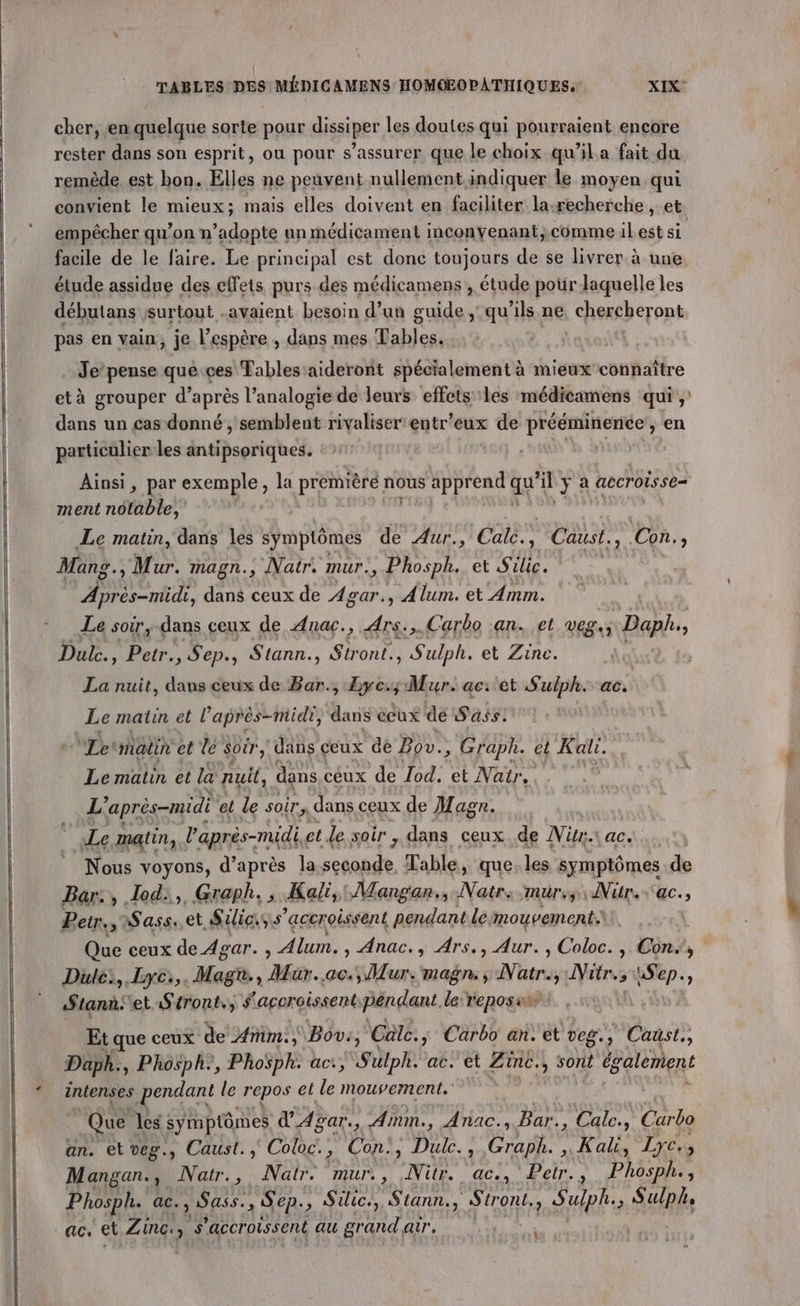 TABLES DES MÉDICAMENS HOMŒOPATHIQUES. XIX
cher, en quelque sorte pour dissiper les doutes qui pourraient encore
rester dans son esprit, ou pour s'assurer que le choix qu'il a fait du
remède est bon. Elles ne peuvent nullement indiquer le moyen qui
convient le mieux; mais elles doivent en faciliter la recherche, et
empêcher qu'on n'adopte un médicament inconvenant, comme il est si
facile de le faire. Le principal est donc toujours de se livrer à une
étude assidue des effets purs des médicamens, étude pour laquelle les
débutans surtout avaient besoin d'un guide, qu'ils ne chercheront
pas en vain, je l'espère, dans mes Tables.
Je pense que ces Tables aideront spécialement à mieux connaître
et à grouper d'après l'analogie de leurs effets les médicamens qui,
dans un cas donné, semblent rivaliser entr'eux de prééminence, en
particulier les antipsoriques.
Ainsi, par exemple, la première nous apprend qu'il y a accroisse-
ment notable,
Le matin, dans les symptômes de Aur., Calc., Caust., Con.,
Mang., Mur. magn., Natr. mur., Phosph. et Silic.
Après-midi, dans ceux de Agar., Alum. et Amm.
Le soir, dans ceux de Anac., Ars., Carbo an. et veg., Daph.,
Dulc., Petr., Sep., Stann., Stront., Sulph. et Zinc.
La nuit, dans ceux de Bar., Lyc., Mur. ac. et Sulph. ac.
Le matin et l'après-midi, dans ceux de Sass.
Le matin et le soir, dans ceux de Bov., Graph. et Kali.
Le matin et la nuit, dans ceux de Iod. et Natr.
L'après-midi et le soir, dans ceux de Magn.
Le matin, l'après-midi et le soir, dans ceux de Nitr. ac.
Nous voyons, d'après la seconde Table, que les symptômes de
Bar., Iod., Graph., Kali, Mangan., Natr. mur., Nitr. ac.,
Petr., Sass. et Silic., s'accroissent pendant le mouvement.
Que ceux de Agar., Alum., Anac., Ars., Aur., Coloc., Con.,
Dulc., Lyc., Magn., Mur. ac., Mur. magn., Natr., Nitr., Sep.,
Stann. et Stront., s'accroissent pendant le repos.
Et que ceux de Amm., Bov., Calc., Carbo an. et veg., Caust.,
Daph., Phosph., Phosph. ac., Sulph. ac. et Zinc., sont également
intenses pendant le repos et le mouvement.
Que les symptômes d'Agar., Amm., Anac., Bar., Calc., Carbo
an. et veg., Caust., Coloc., Con., Dulc., Graph., Kali, Lyc.,
Mangan., Natr., Natr. mur., Nitr. ac., Petr., Phosph.,
Phosph. ac., Sass., Sep., Silic., Stann., Stront., Sulph., Sulph.
ac. et Zinc., s'accroissent au grand air.